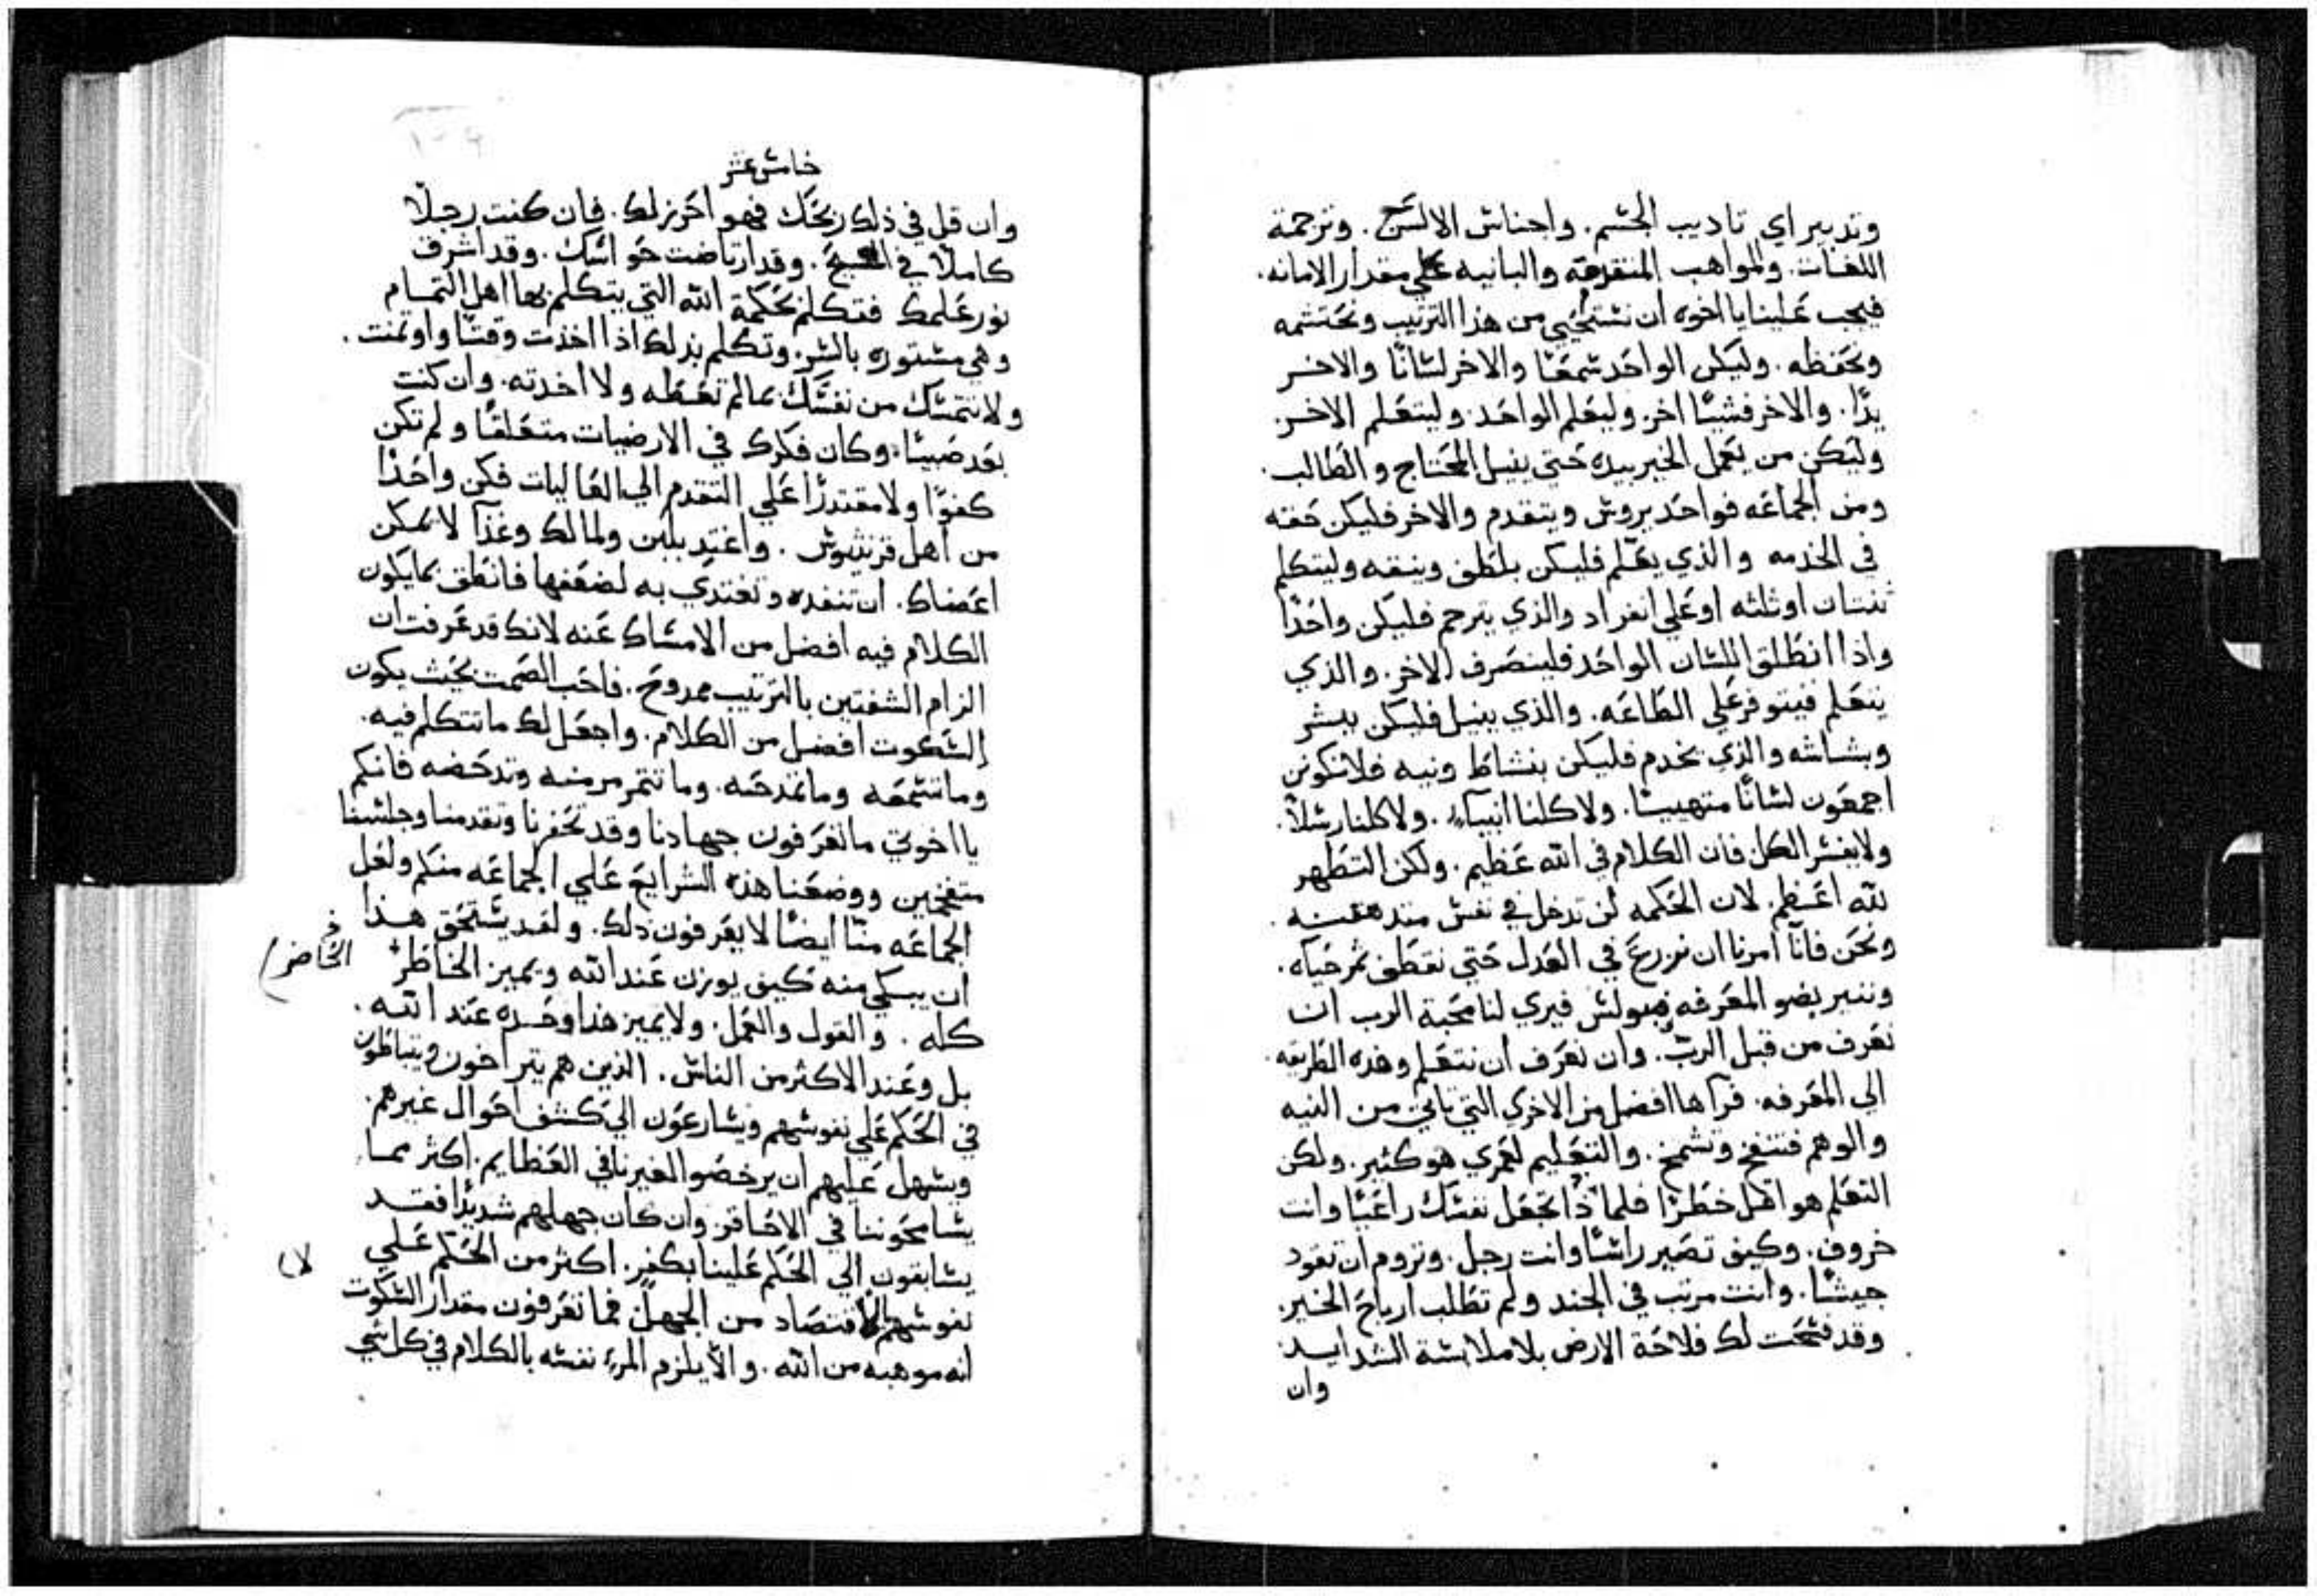 وتدبير اي تاديب الجسم. واجناس الالسن. وترجمة
اللغات. والمواهب المتفرقه والبانيه علي مقدار الامانه.
فيجب علينا يا اخوه ان نستحيي من هذا الترتيب ونحتشمه
ونحفظه. وليكن الواحد سمعًا والاخر لسانًا والاخر
يدًا. والاخر فشيئًا اخر. وليعلم الواحد. وليتعلم الاخر
وليكن من يعمل الخير بيده حتي ينيل المحتاج والطالب.
ومن الجماعه فواحد يروس ويتقدم والاخر فليكن حقه
في الخدمه والذي يعلم فليكن بلطف وبنقه وليتكلم
تنتان او ثلثه او علي انفراد والذي يترجم فليكن واحدًا
واذا انطلق اللسان الواحد فلينصرف الاخر. والذي
يتعلم فيتوفر علي الطاعه. والذي ينيل فليكن ببشر
وبشاشه والذي يخدم فليكن بنشاط ونيه فلا نكونن
اجمعون لسانًا متهيبًا. ولا كلنا انبياء. ولا كلنا رسلاً.
ولا يفسر الكل فان الكلام في الله عظيم. ولكن التطهر
لله اعظم. لان الحكمه لن تدخل في نفس
ونحن فانا امرنا ان نزرع في العدل حتي نقطف ثمر حياه.
وننير بضو المعرفه فبولس فيري لنا محبة الرب ان
نعرف من قبل الرب. وان نعرف ان نتعلم وهذه الطريقه
الي المعرفه. فرآها افضل من الاخري التي تاتي من النيه
والوهم فتنفخ وتشمخ. والتعليم لعمري هو كثير. ولكن
التعلم هو اقل خطرًا فلماذا تجعل نفسك راعيًا وانت
خروف. وكيف تصير راسًا وانت رجل. وتروم ان تقود
جيشًا. وانت مرتب في الجند ولم تطلب ارباح الخير.
وقد فتحت لك فلاحة الارض بلا ملابسة الشدايد
وان
خامس عشر
وان قل في ذلك ربحك فهو احرز لك. فان كنت رجلاً
كاملاً في المسيح. وقد ارتاضت حواسك. وقد اشرق
نور علمك فتكلم بحكمة الله التي يتكلم بها اهل التمام
وهي مستوره بالسر. وتكلم بذلك اذا اخذت وقتًا واوتمنت.
ولا تتمسك من نفسك بمالم تعطه ولا اخدته. وان كنت
بعد صبيًا. وكان فكرك في الارضيات متعلقًا ولم تكن
كفوًا ولا مقتدرًا علي التقدم الي العاليات فكن واحدًا
من اهل قرنثيوس. واغتد بلبن ولما لك وغذآ لا يمكن
اعضاك. ان تنفده وتغتدي به لضعفها فانطق بما يكون
الكلام فيه افضل من الامساك عنه لانك قد عرفت ان
الزام الشفتين بالترتيب ممدوح. فاحب الصمت بحيث يكون
السكوت افضل من الكلام. واجعل لك ما تتكلم فيه.
وما تسمعه وما تمدحه. وما تتمرمر منه وتدحضه فانكم
يا اخوتي ما تعرفون جهادنا وقد تحفزنا وتقدمنا وجلسنا
متفخمين ووضعنا هذه الشرايع علي الجماعه منكم ولعل
الجماعه منا ايضًا لا يعرفون ذلك. ولقد يستحق هذا
ان يبكي منه كيف يوزن عند الله ويميز الخاطر
الحاضر
كله. والقول والعمل. ولا يميز هذا وحده عند الله.
بل وعند الاكثر من الناس. الذين هم يتراخون ويتباطون
في الحكم علي نفوسهم ويسارعون الي كشف احوال غيرهم.
ويسهل عليهم ان يرخصوا لغيرنا في العظايم. اكثر مما
يسامحوننا في الاحاقر. وان كان جهلهم شديدًا فقد
يسابقون الي الحكم علينا بكفر. اكثر من الحكم علي
لا
نفوسهم بالاقتصاد من الجهل. فما تعرفون مقدار السكوت
انه موهبه من الله. والا يلزم المرء نفسه بالكلام في كل شي